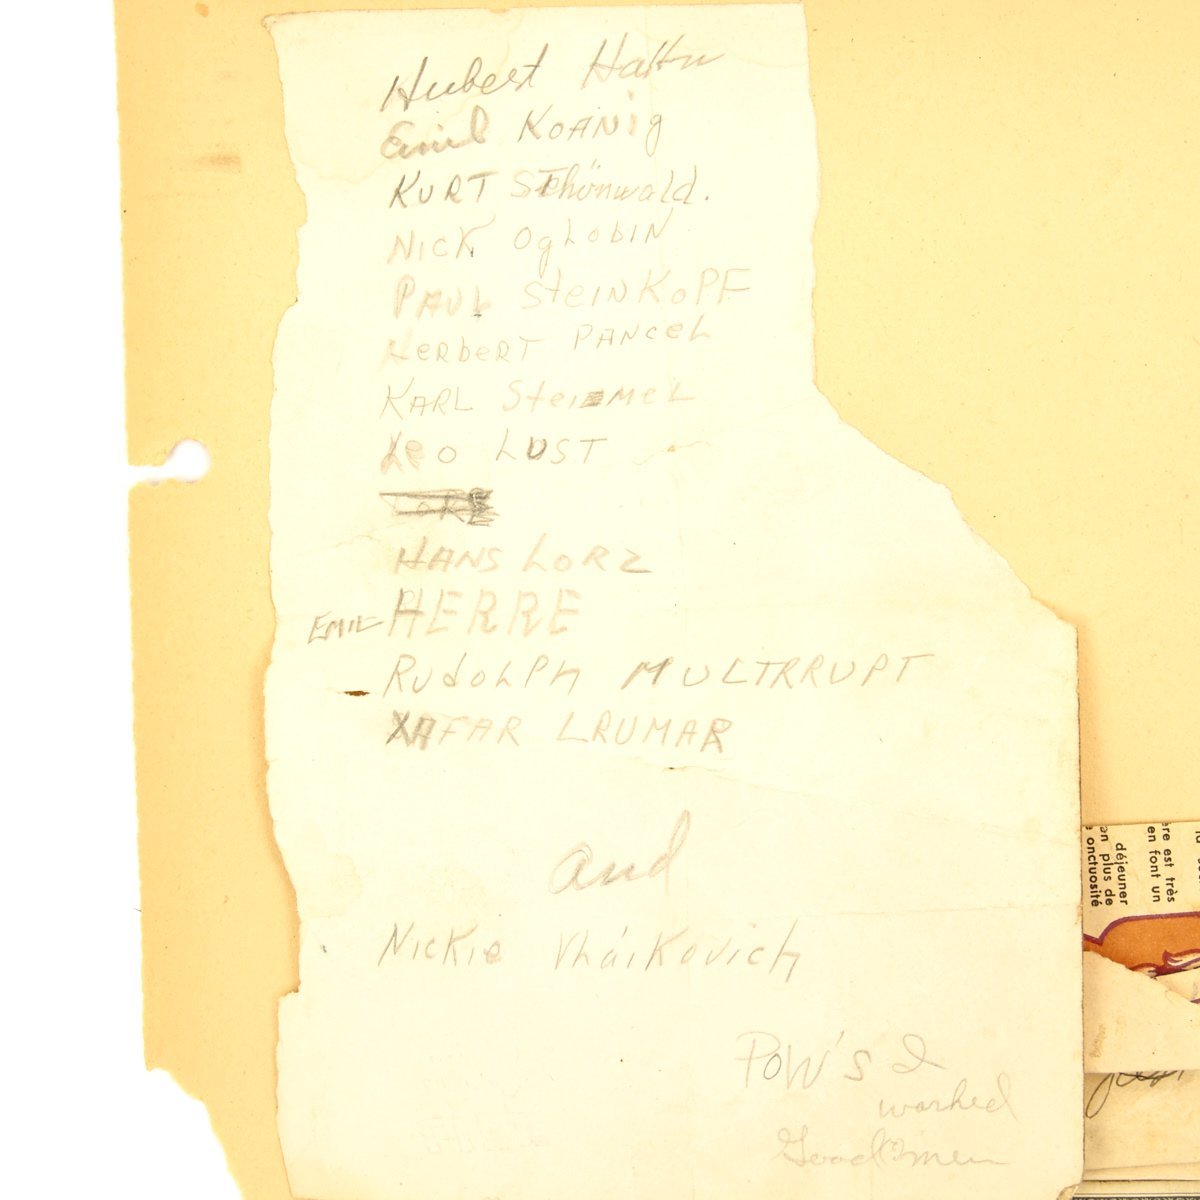 Hubert Hahn
Emil KOANIG
KURT Schönwald.
NICK OgLobIN
PAUL SteINKOPF
HerbeRT PANCeL
KARL SteiMeL
Leo LUST
HANS LORZ
EMIL HERRE
RudOLPh MULTRRUPT
XAFAR LRUMAR
and
NICKIE Vhaikovich
POW'S I
worked
Good men
déjeuner
an plus de
onctuosité
ère est très
en font un